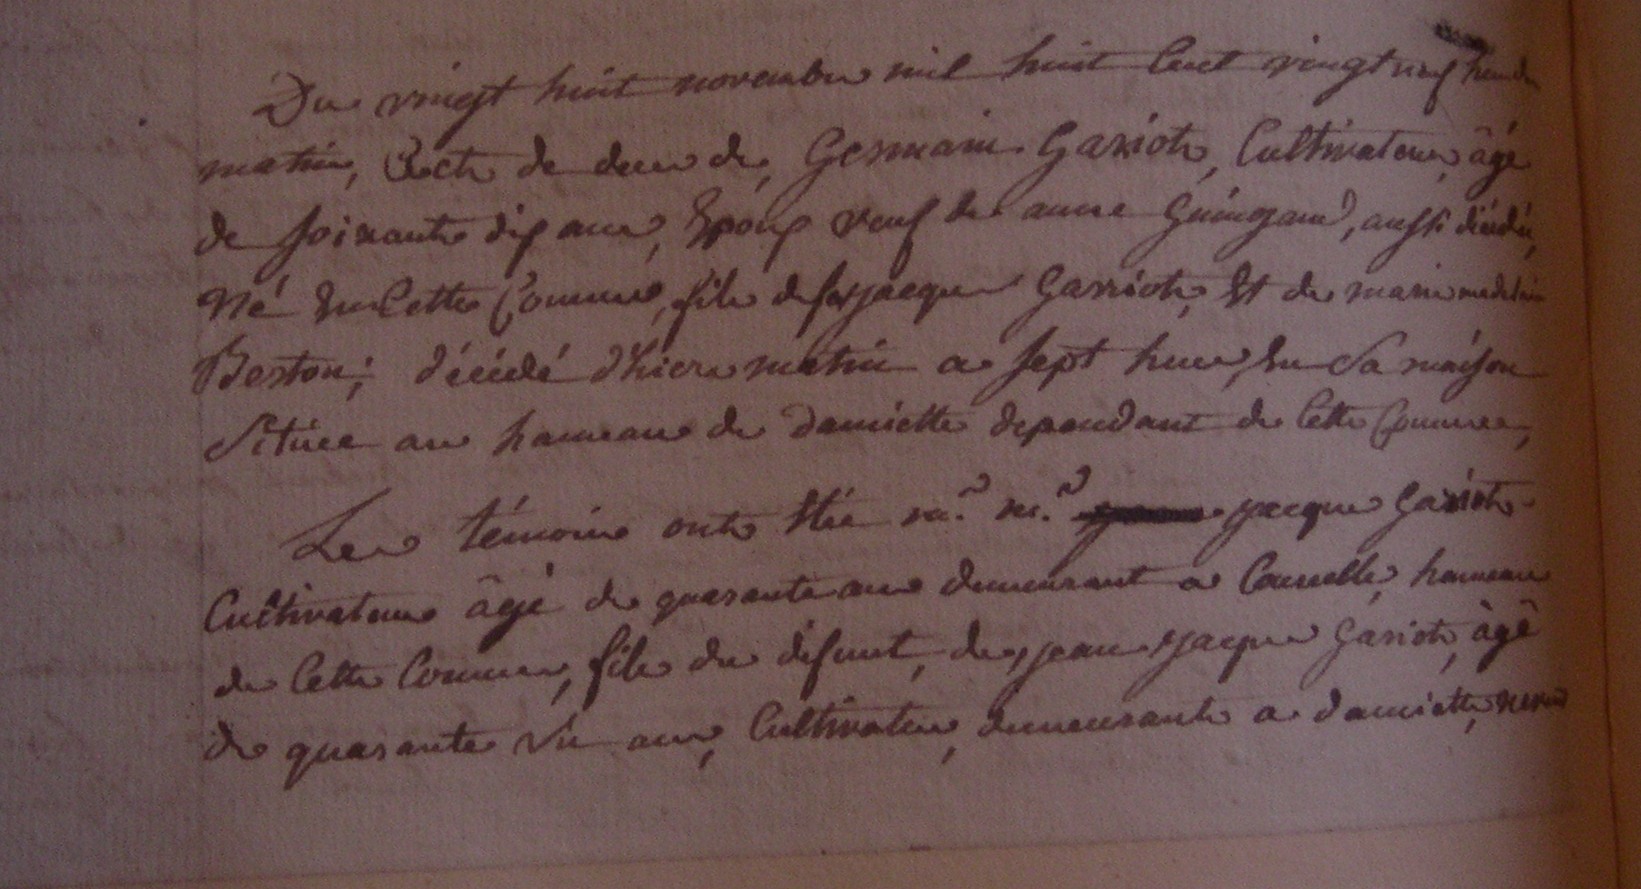 Du vingt huit novembre mil huit Cent vingt neuf
matin, Acte de deces de Germain Garriot, Cultivateur, âgé
de soixante dix ans, Epoux veuf de anne, aussi décédée,
Né En Cette Commune, fils de feu jacque Garriot, Et de marie madelaine
Berton; décédé d'hier matin a sept heure, En Sa maison
Située au hameau de damiette dependant de Cette Commune,
Les témoins ont Etée mr. mr. jacque Garriot
Cultivateur âgé de quarante ans demeurant a Courcelle, hameau
de Cette Commune, fils du defunt, de jean jacque Garriot, âgé
de quarante six ans, Cultivateur, demeurant a damiette, neveu